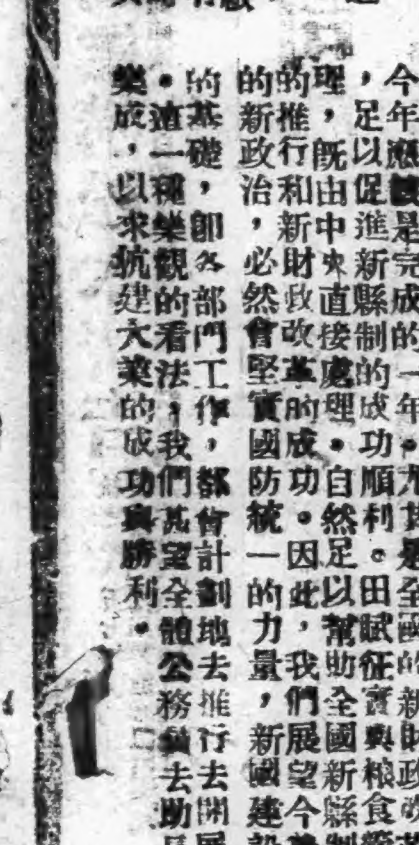 今年應該是完成的一年。尤其是全國的新財政改
，足以促進新縣制的成功順利。田賦征實與粮食
理，既由中央直接處理。自然足以幫助全國新縣制
的推行和新財政改革的成功。因此，我們展望今
的新政治，必然會堅實國防統一的力量，新國建設
的基礎，卽各部門工作，都會計劃地去推行去開展
。這一種樂觀的看法，我們甚望全體公務員去助
樂成，以求抗建大業的成功與勝利。